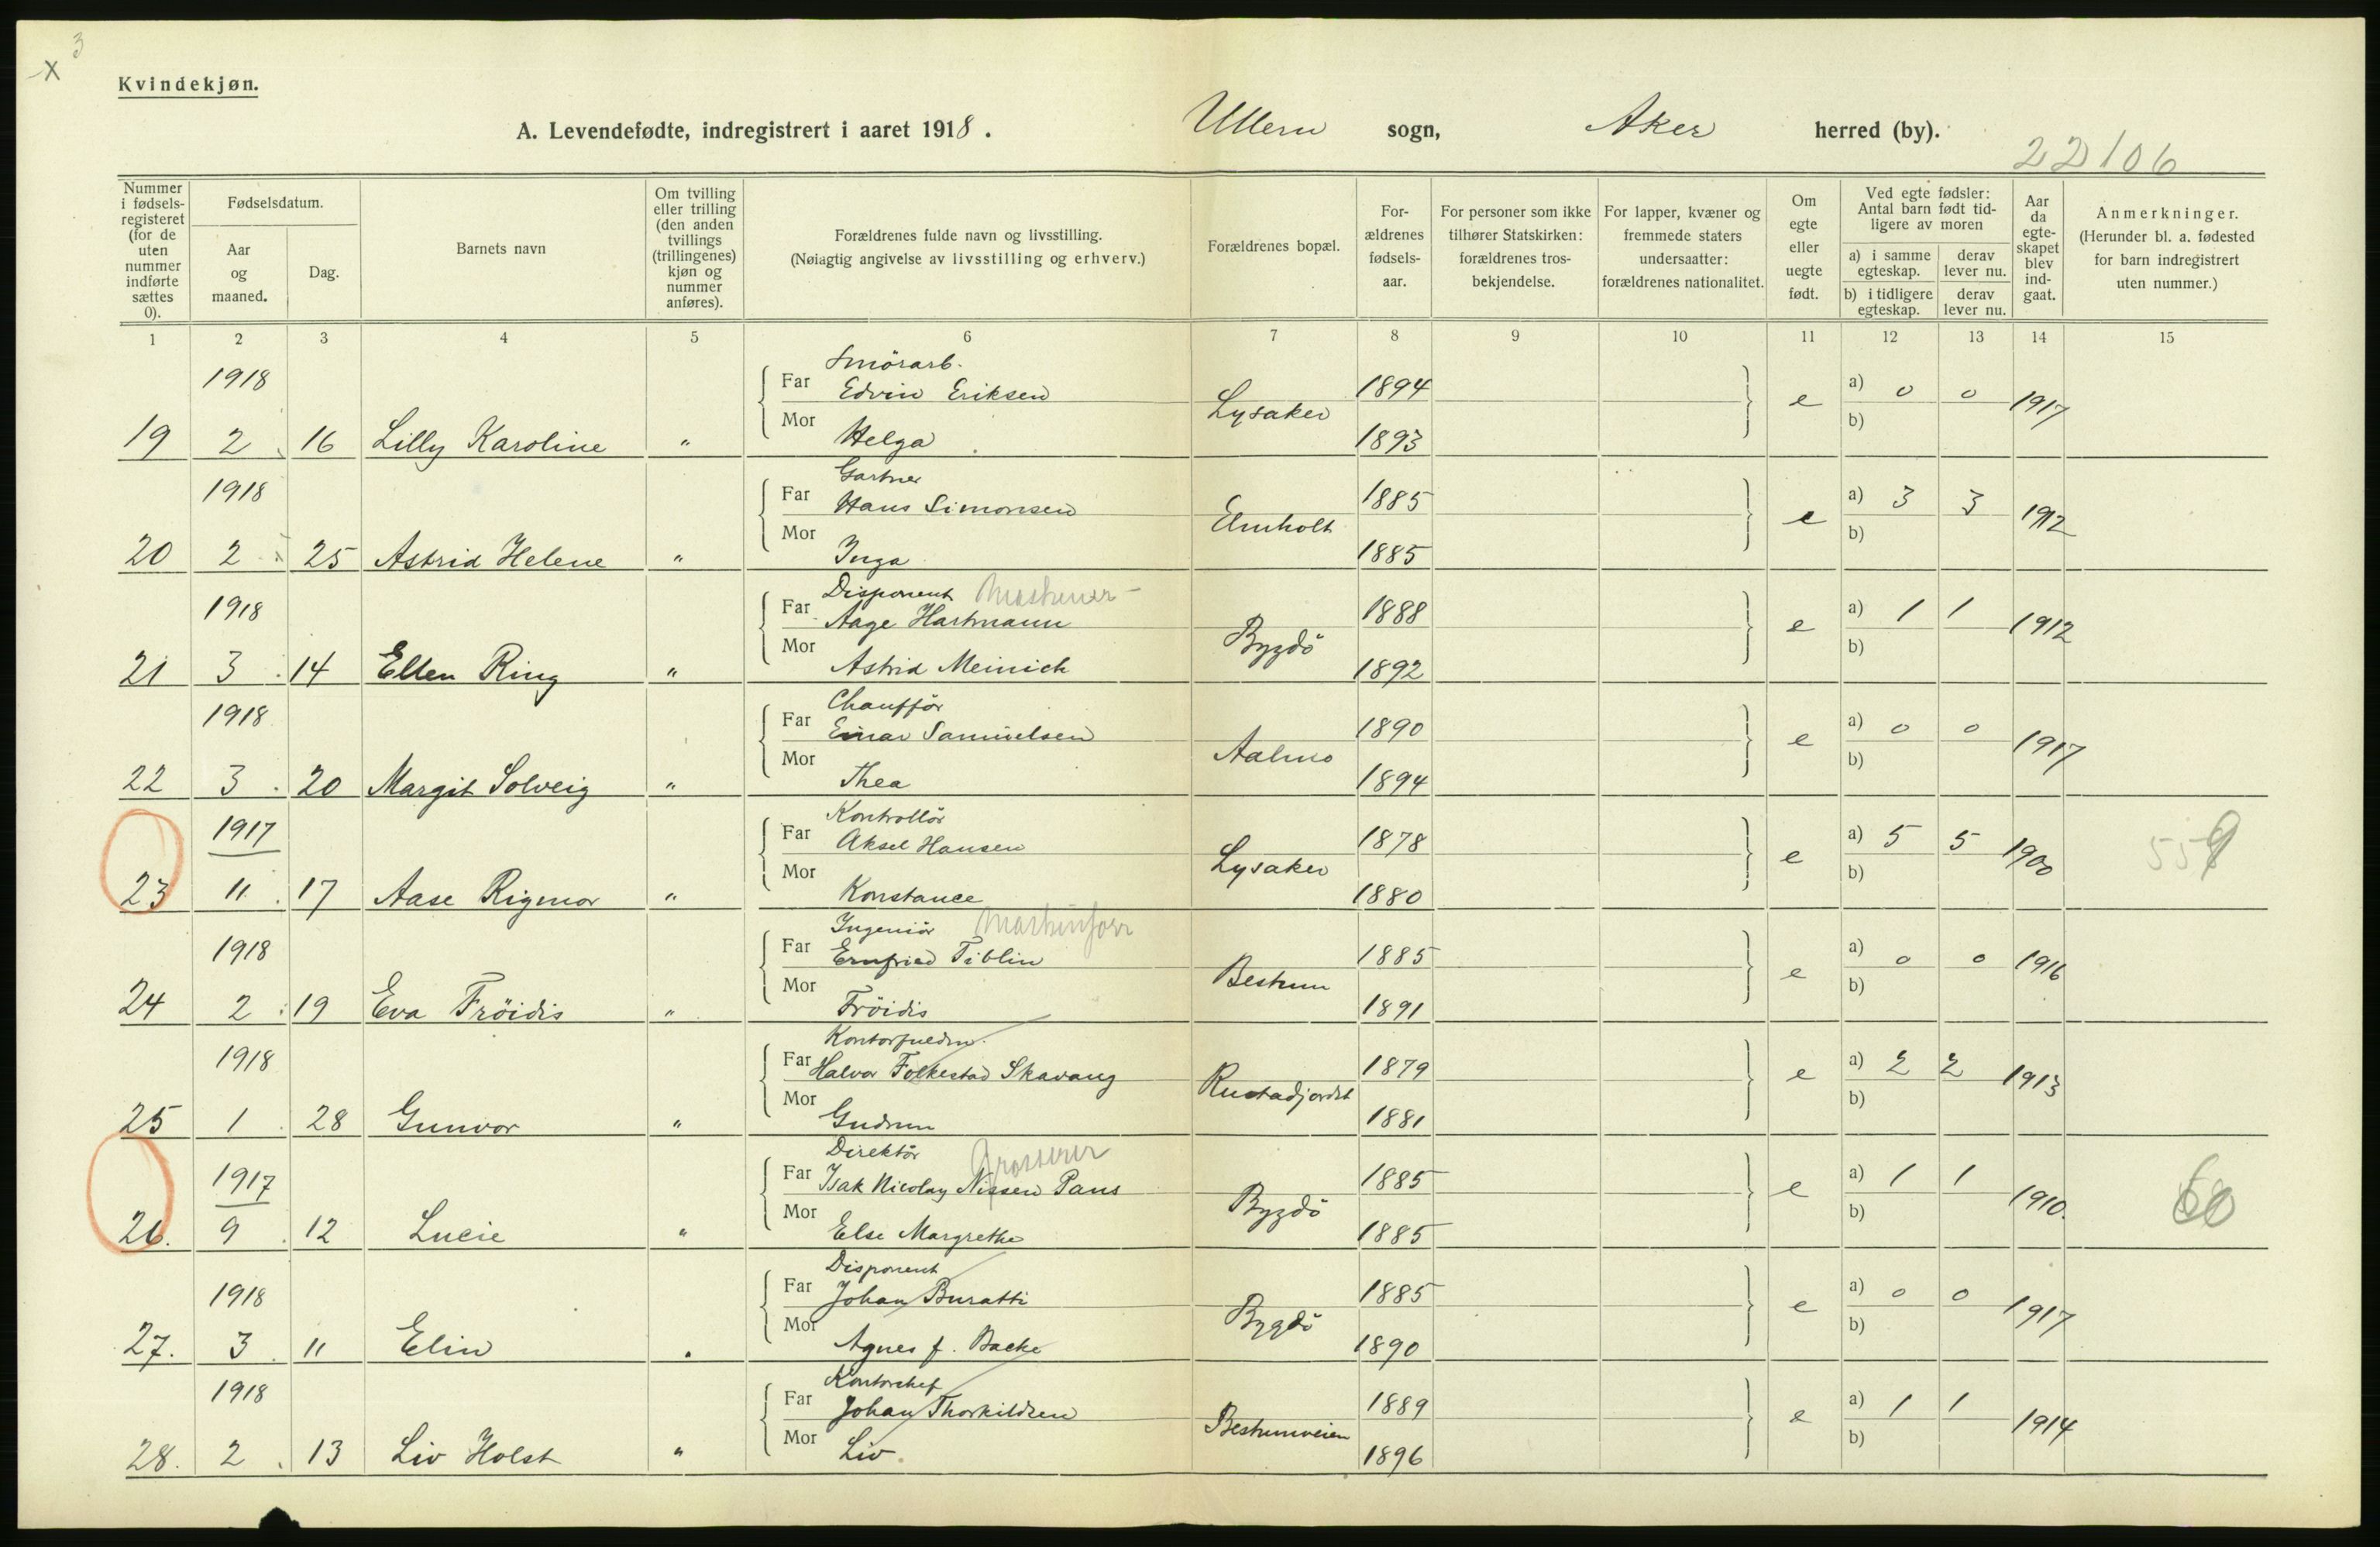 x 3
Kvindekjøn.
A. Levendefødte, indregistrert i aaret 1918. Ullern sogn, Aker herred (by).
22106
Nummer i fødselsregisteret (for de uten nummer indførte sættes 0).
Fødselsdatum.
Aar og maaned.
Dag.
Barnets navn
Om tvilling eller trilling (den anden tvillings (trillingenes) kjøn og nummer anføres).
Forældrenes fulde navn og livsstilling.
(Nøiagtig angivelse av livsstilling og erhverv.)
Forældrenes bopæl.
Forældrenes fødselsaar.
For personer som ikke tilhører Statskirken: forældrenes trosbekjendelse.
For lapper, kvæner og fremmede staters undersaatter: forældrenes nationalitet.
Om egte eller uegte født.
Ved egte fødsler: Antal barn født tidligere av moren
a) i samme egteskap. derav lever nu.
b) i tidligere egteskap. derav lever nu.
Aar da egteskapet blev indgaat.
Anmerkninger.
(Herunder bl. a. fødested for barn indregistrert uten nummer.)
1 2 3 4 5 6 7 8 9 10 11 12 13 14 15
1918 Smörarb.
Far Edvin Eriksen Lysaker 1894 e a) 0 0 1917
19 2 16 Lilly Karoline " Mor Helga 1893 b)
1918 Gartner
Far Hans Simonsen Elmholt 1885 e a) 3 3 1912
20 2 25 Astrid Helene " Mor Inga 1885 b)
1918 Disponent
Far Aage Hartmann Bygdö 1888 e a) 1 1 1912
21 3 14 Ellen Ring " Mor Astrid Meinich 1892 b)
1918 Chafför
Far Einar Samuelsen 1890 e a) 0 0 1917
22 3 20 Margit Solveig " Mor Thea 1894 b)
1917 Kontrollör
Far Aksel Hansen Lysaker 1878 e a) 5 5 1900 559
23 11 17 Aase Rigmor " Mor Konstance 1880 b)
1918 Ingeniör
Far Ernfried Tiblin Bestum 1885 e a) 0 0 1916
24 2 19 Eva Fröidis " Mor Fröidis 1891 b)
1918 Kontorfuldm.
Far Halvor Folkestad Skavang Rustadjordet 1879 e a) 2 2 1913
25 1 28 Gunvor " Mor Gudrun 1881 b)
1917 Direktör Grosserer
Far Isak Nicolay Nissen Paus Bygdö 1885 e a) 1 1 1910. 60
26. 9 12 Lucie " Mor Else Margrethe 1885 b)
1918 Disponent
Far Johan Buratti Bygdö 1885 e a) 0 0 1917
27. 3 11 Elin " Mor Agnes f. Backe 1890 b)
1918 Kontorchef
Far Johan Thorkildsen Bestumveien 1889 e a) 1 1 1914
28. 2 13 Liv Holst " Mor Liv 1896 b)